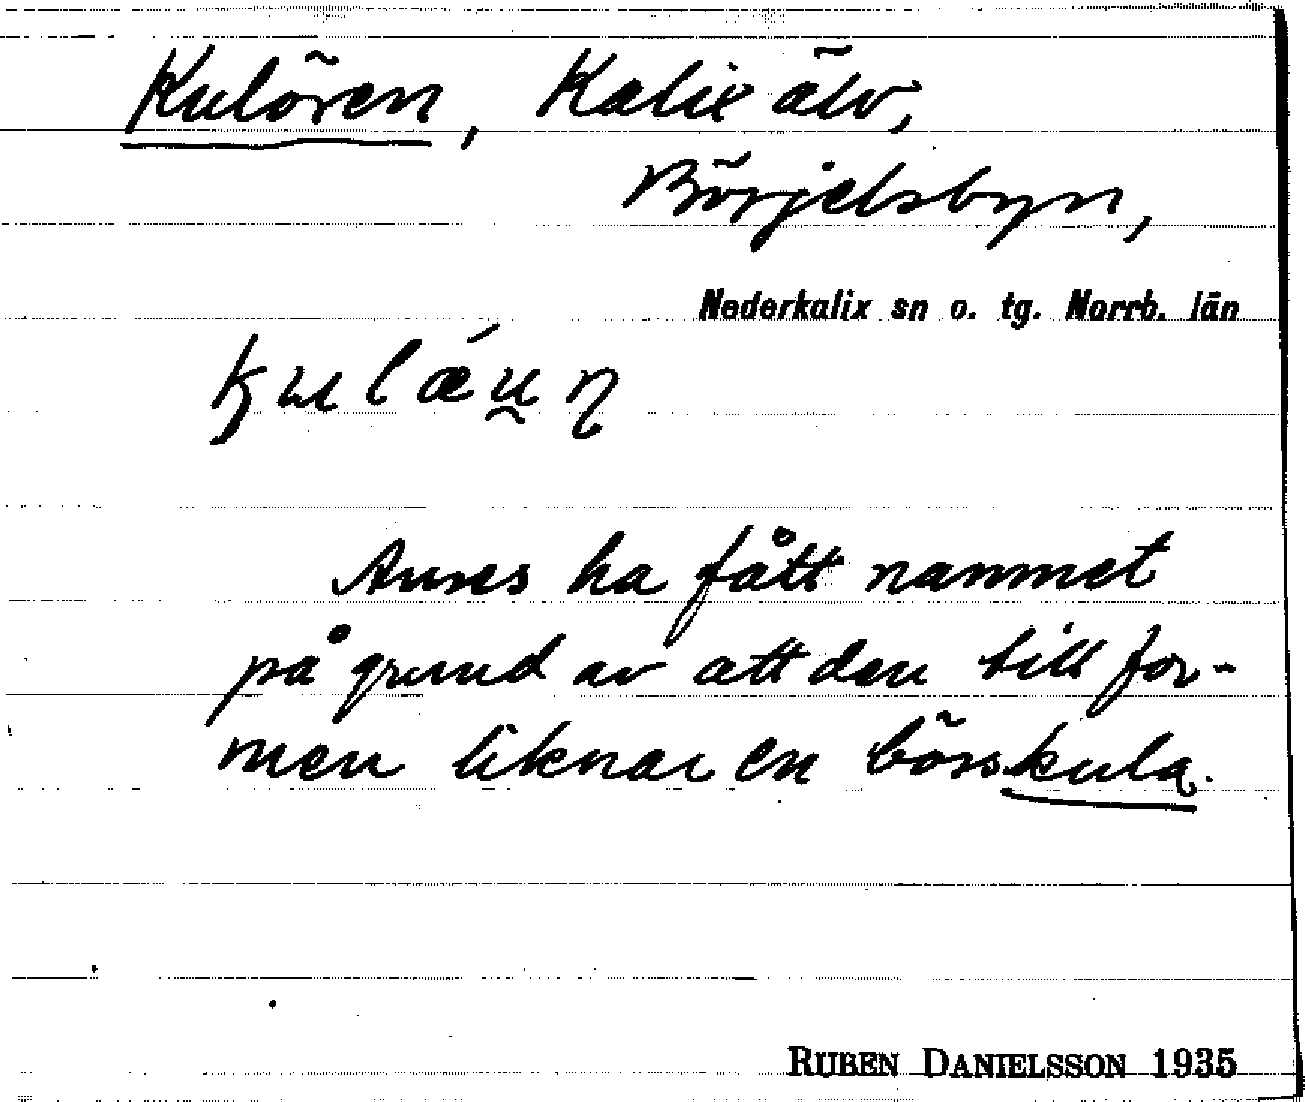 Kulören, Kalix älv,
Börjelsbyn,
Nederkalix sn o. tg. Norrb. län
kulǽu̯n
Anses ha fått namnet
på grund av att den till for-
men liknar en bösskula.
RUBEN DANIELSSON 1935